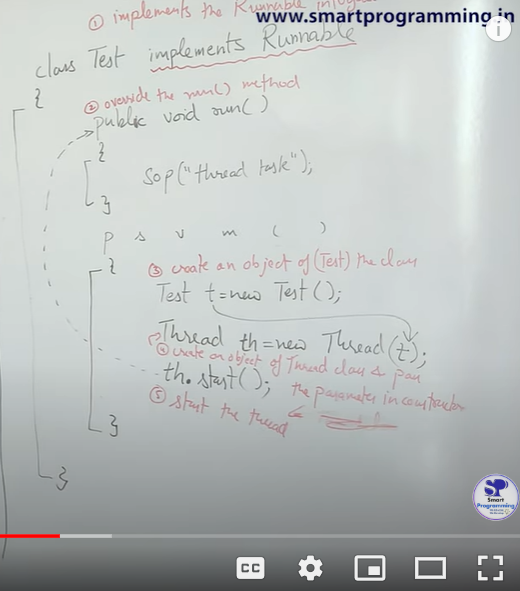 www.smartprogramming.in
① implements the Runnable
class Test implements Runnable
{
② override the run() method
public void run()
{
sop("thread task");
}
p s v m ( )
{
③ create an object of (Test) the class
Test t=new Test();
Thread th=new Thread(t);
④ create an object of Thread class & pass
the parameter in constructor
th.start();
⑤ start the thread
}
}
SP
Smart
Programming
CC